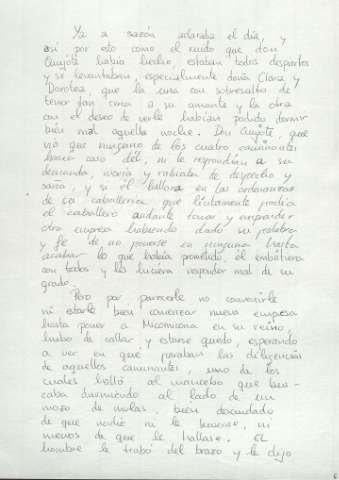 Ya a sazón aclaraba el día, y
así por esto como el ruido que don
Quijote había hecho, estaban todos despiertos
y se levantaban, especialmente doña Clara y
Dorotea, que la una con sobresalto de
tener tan cerca a su amante y la otra
con el deseo de verle habían podido dormir
bien mal aquella noche. Don Quijote, que
vio que ninguno de los cuatro caminantes
hacía caso dél, ni le respondían a su
demanda, moría y rabiaba de despecho y
saña, y si él hallara en las ordenanzas
de su caballería que lícitamente podía
el caballero andante tomar y emprender
otra empresa habiendo dado su palabra
y fe de no ponerse en ninguna hasta
acabar lo que había prometido, él embistiera
con todos y les hiciera responder mal de su
grado.
Pero por parecerle no convenirle
ni estarle bien comenzar nueva empresa
hasta poner a Micomicona en su reino,
hubo de callar y estarse quedo, esperando
a ver en que paraban las diligencias
de aquellos caminantes, uno de los
cuales halló al mancebo que bus-
caba durmiendo al lado de un
mozo de mulas, bien descuidado
de que nadie ni le buscase, ni
menos de que le hallase. El
hombre le trabó del brazo y le dijo